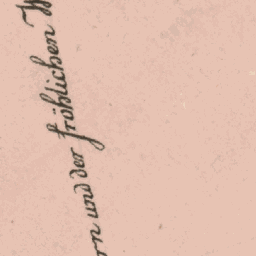 und der fröhlichen